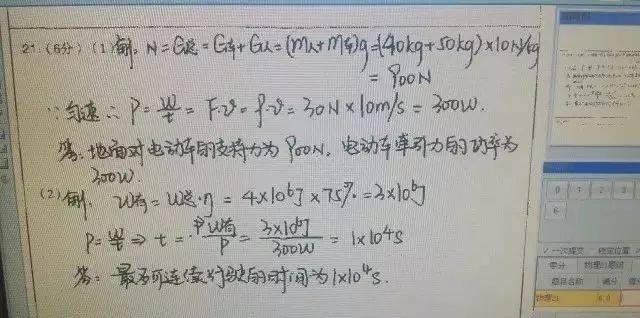 21.(6分)(1)解：N=G总=G车+G人=(m人+m车)g=(40kg+50kg)×10N/kg
=900N
∵匀速∴P=W/t=F·v=f·v=30N×10m/s=300W.
答：地面对电动车的支持力为900N，电动车牵引力的功率为
300W.
(2)解：W有=W总·η=4×10⁶J×75%=3×10⁶J
P=W/t⇒t=W有/P=3×10⁶J/300W=1×10⁴s
答：最多可连续行驶的时间为1×10⁴s.
0 1 2 3
6
一次提交
零分
题目名称 满分
6.0